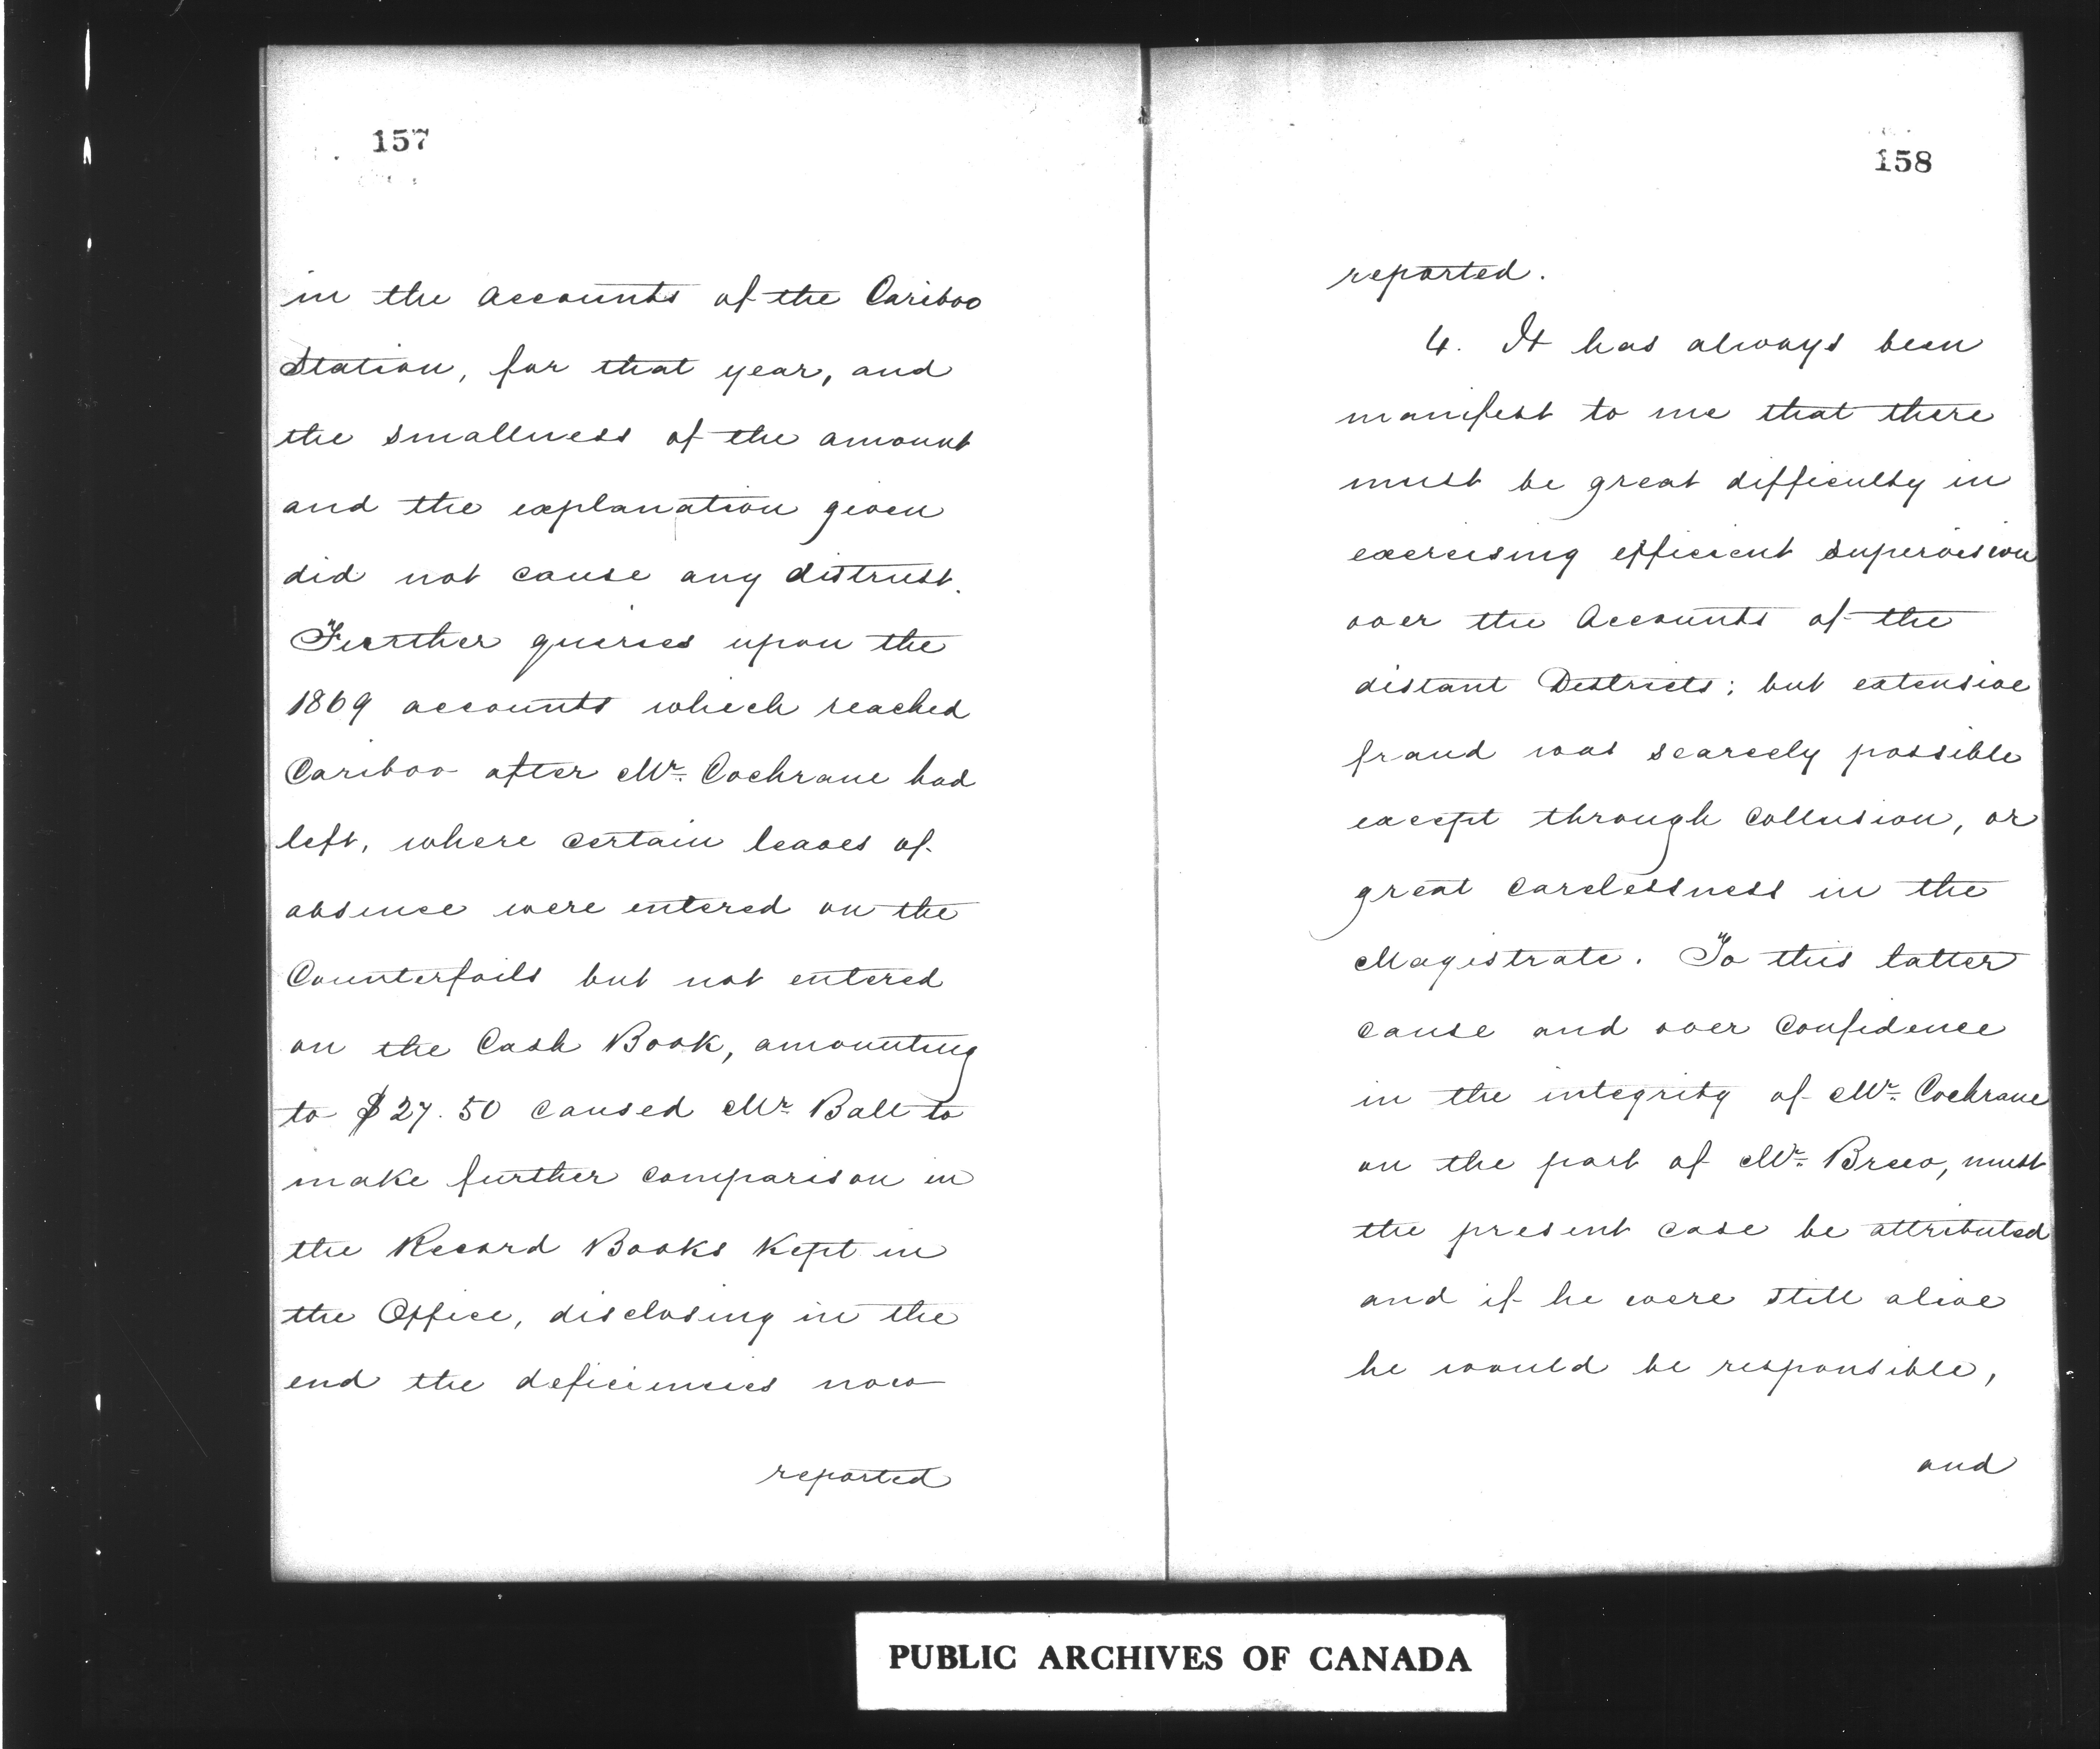 157
in the accounts of the Cariboo
Station, for that year, and
the smallness of the amount
and the explanation given
did not cause any distrust.
Further queries upon the
1869 accounts which reached
Cariboo after Mr. Cochrane had
left, where certain leaves of
absence were entered on the
Counterfoils but not entered
on the Cash Book, amounting
to $27.50 caused Mr. Ball to
make further comparison in
the Record Books kept in
the Office, disclosing in the
end the deficiencies now
reported
158
reported.
4. It has always been
manifest to me that there
must be great difficulty in
exercising efficient supervision
over the Accounts of the
distant Districts; but extensive
fraud was scarcely possible
except through collusion, or
great carelessness in the
Magistrate. To this latter
cause and over confidence
in the integrity of Mr. Cochrane
on the part of Mr. Brew, must
the present case be attributed
and if he were still alive
he would be responsible,
and
PUBLIC ARCHIVES OF CANADA